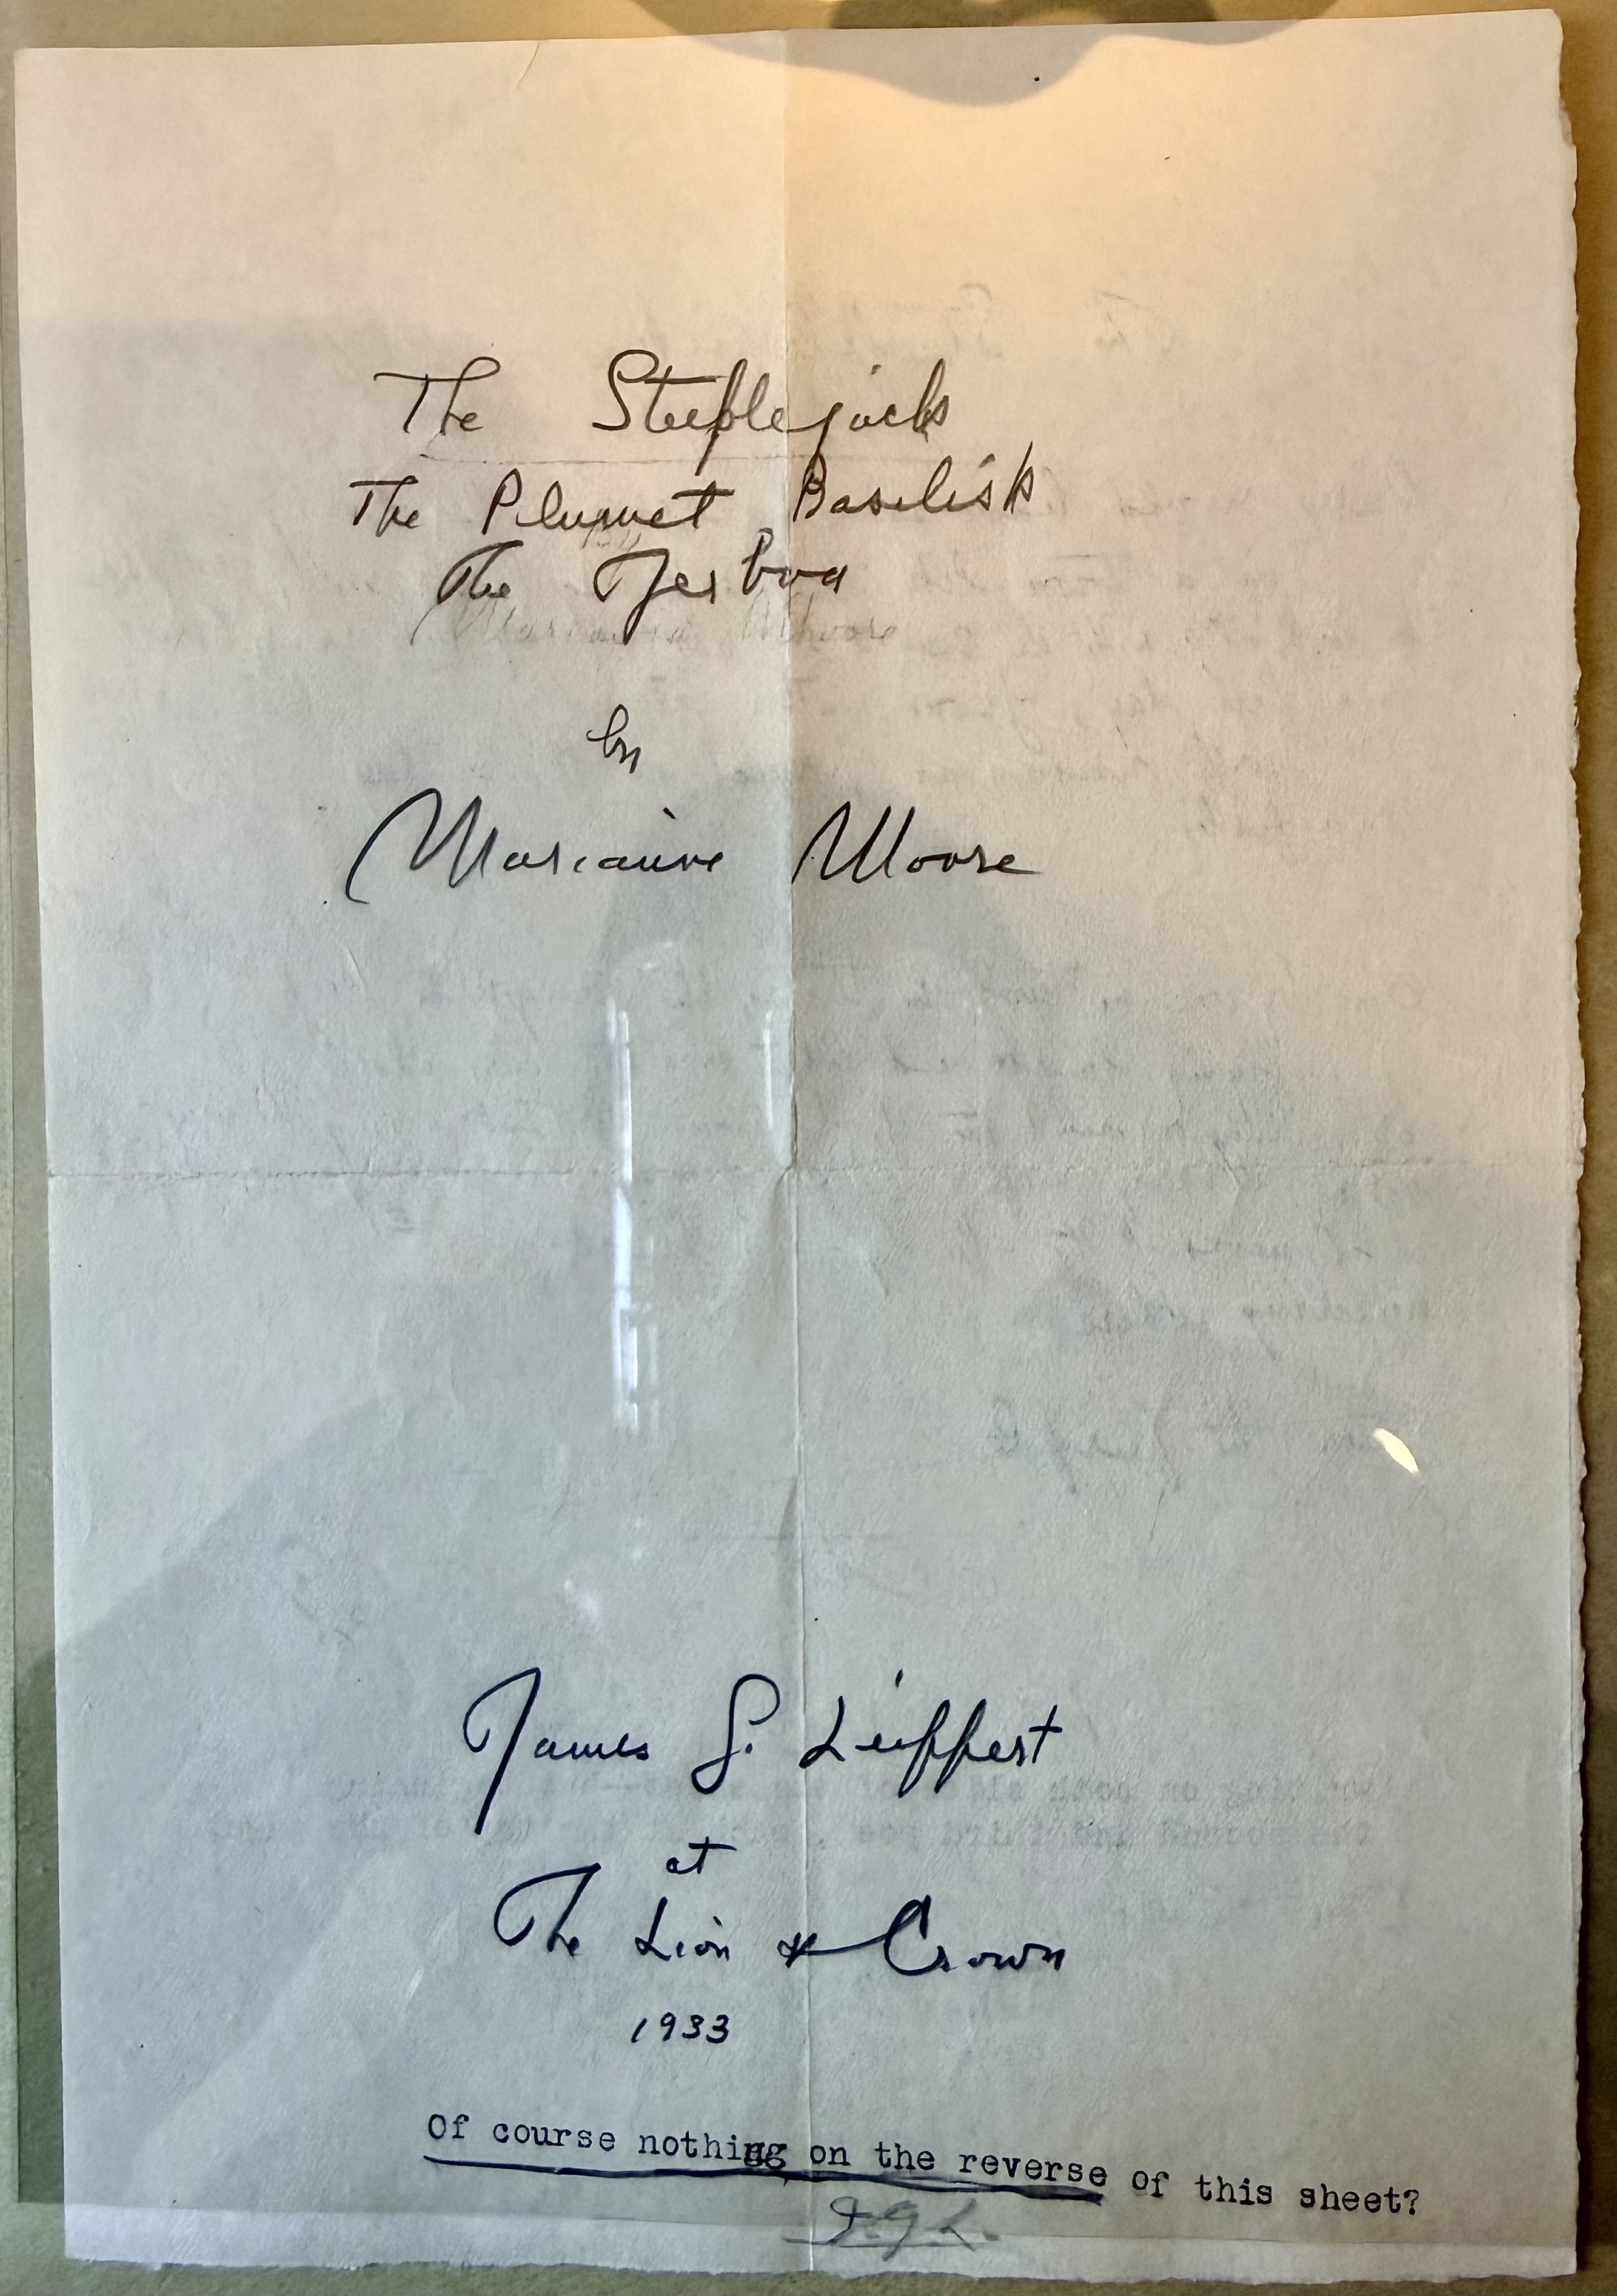 The Steeplejack
The Plumet Basilisk
The Jerboa
by
Marianne Moore
James G. Leippert
at
The Lion & Crown
1933
Of course nothing on the reverse of this sheet?
J.G.L.